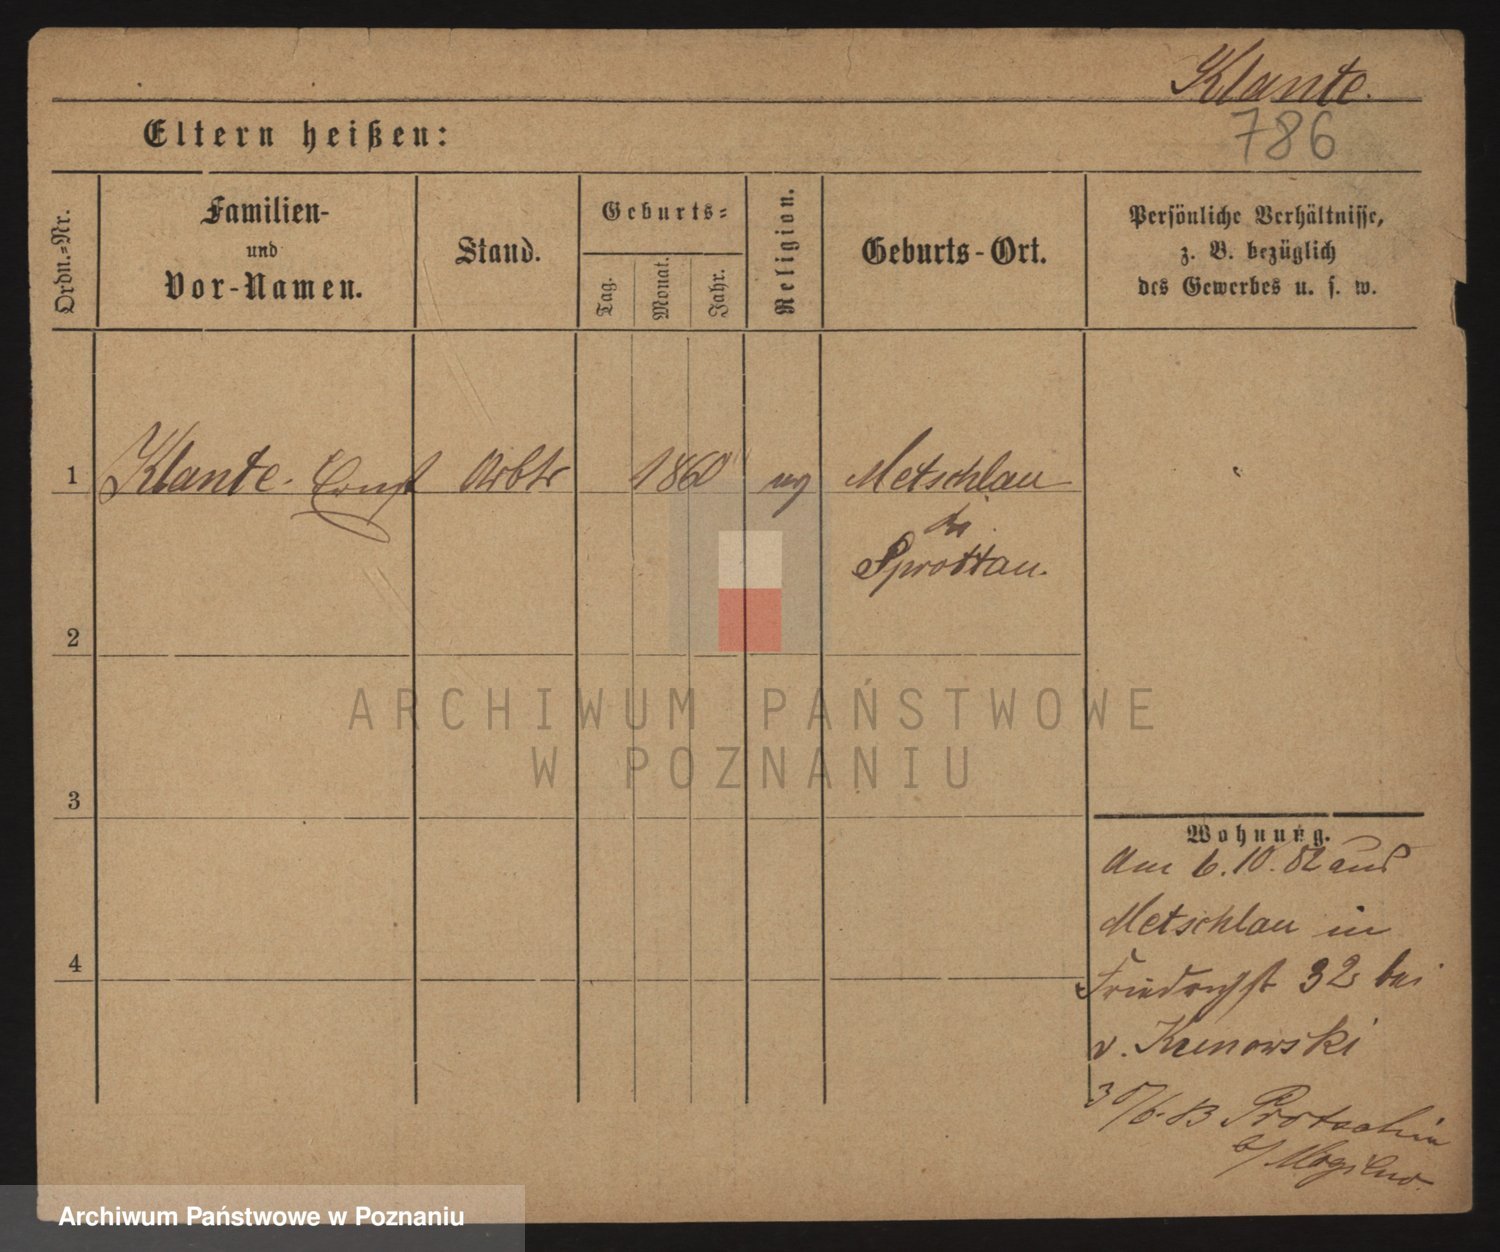 Klante.
786
Eltern heißen:
Ordn.=Nr.
Familien-
und
Vor-Namen.
Stand.
Geburts=
Tag.
Monat.
Jahr.
Religion.
Geburts-Ort.
Persönliche Verhältnisse,
z. B. bezüglich
des Gewerbes u. s. w.
1 Klante. Ernst Arbtr 1860 ev Metschlau
Sprottau.
2
ARCHIWUM PAŃSTWOWE
W POZNANIU
3
Wohnung.
Am 6.10.82 aus
Metschlau in
Friedrichst 32 bei
4
v.
30/6.83
b/ Mogilno.
Archiwum Państwowe w Poznaniu